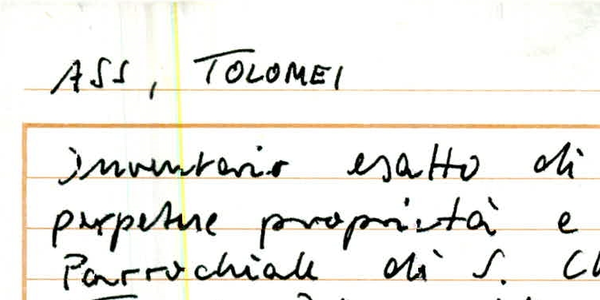 ASS, TOLOMEI
inventario esatto di
perpetue proprietà e
Parrochiale di S.